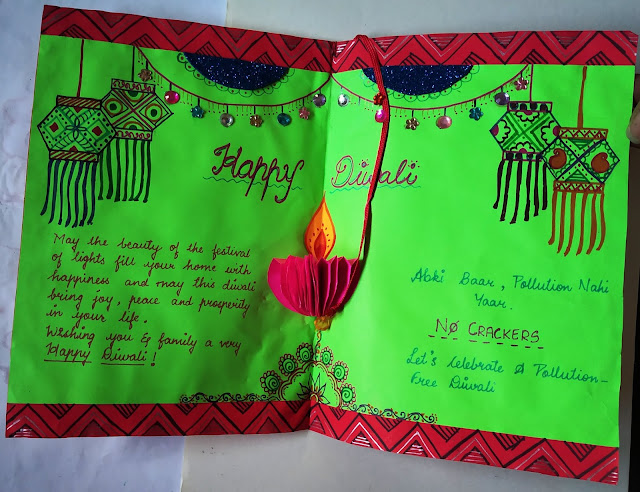 Happy Diwali
May the beauty of the festival
of lights fill your home with
happiness and may this diwali
bring joy, peace and prosperity
in your life.
Wishing you & family a very
Happy Diwali!
Abki Baar, Pollution Nahi
Yaar.
NO CRACKERS
Let's Celebrate a Pollution-
Free Diwali